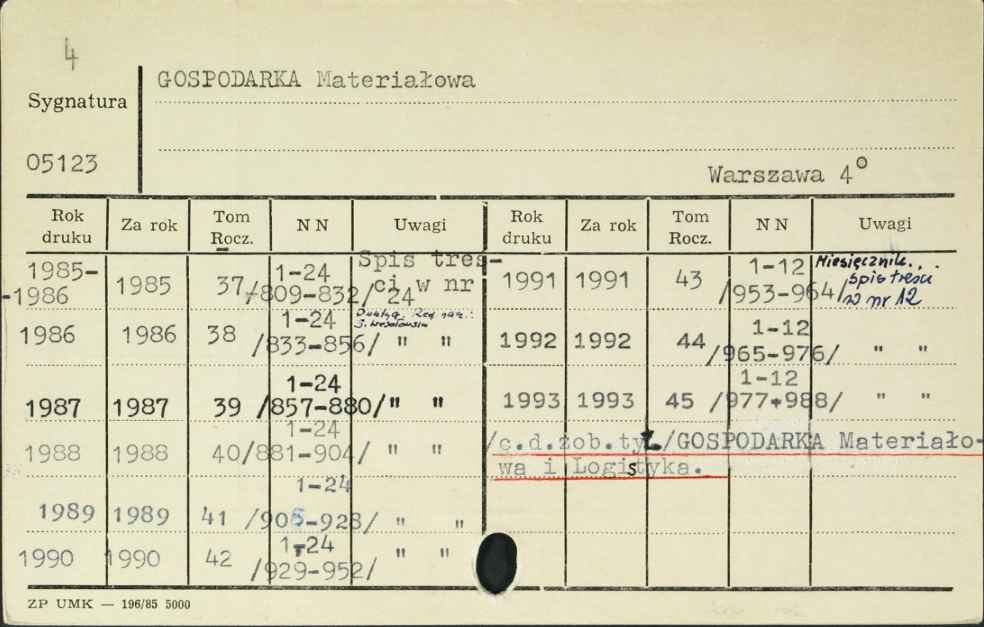 4
GOSPODARKA Materiałowa
Sygnatura
05123
Warszawa 4°
Rok druku Za rok Tom Rocz. NN Uwagi Rok druku Za rok Tom Rocz. NN Uwagi
1985-1986 1985 37 1-24 /809-832/ Spis treści w nr 24
1986 1986 38 1-24 /833-856/ " "
1987 1987 39 1-24 /857-880/ " "
1988 1988 40 1-24 /881-904/ " "
1989 1989 41 1-24 /905-928/ " "
1990 1990 42 1-24 /929-952/ " "
1991 1991 43 1-12 /953-964/ Miesięcznik. Spis treści w nr 12
1992 1992 44 1-12 /965-976/ " "
1993 1993 45 1-12 /977-988/ " "
/c.d.zob.tyt./GOSPODARKA Materiało-
wa i Logistyka.
ZP UMK — 196/85 5000